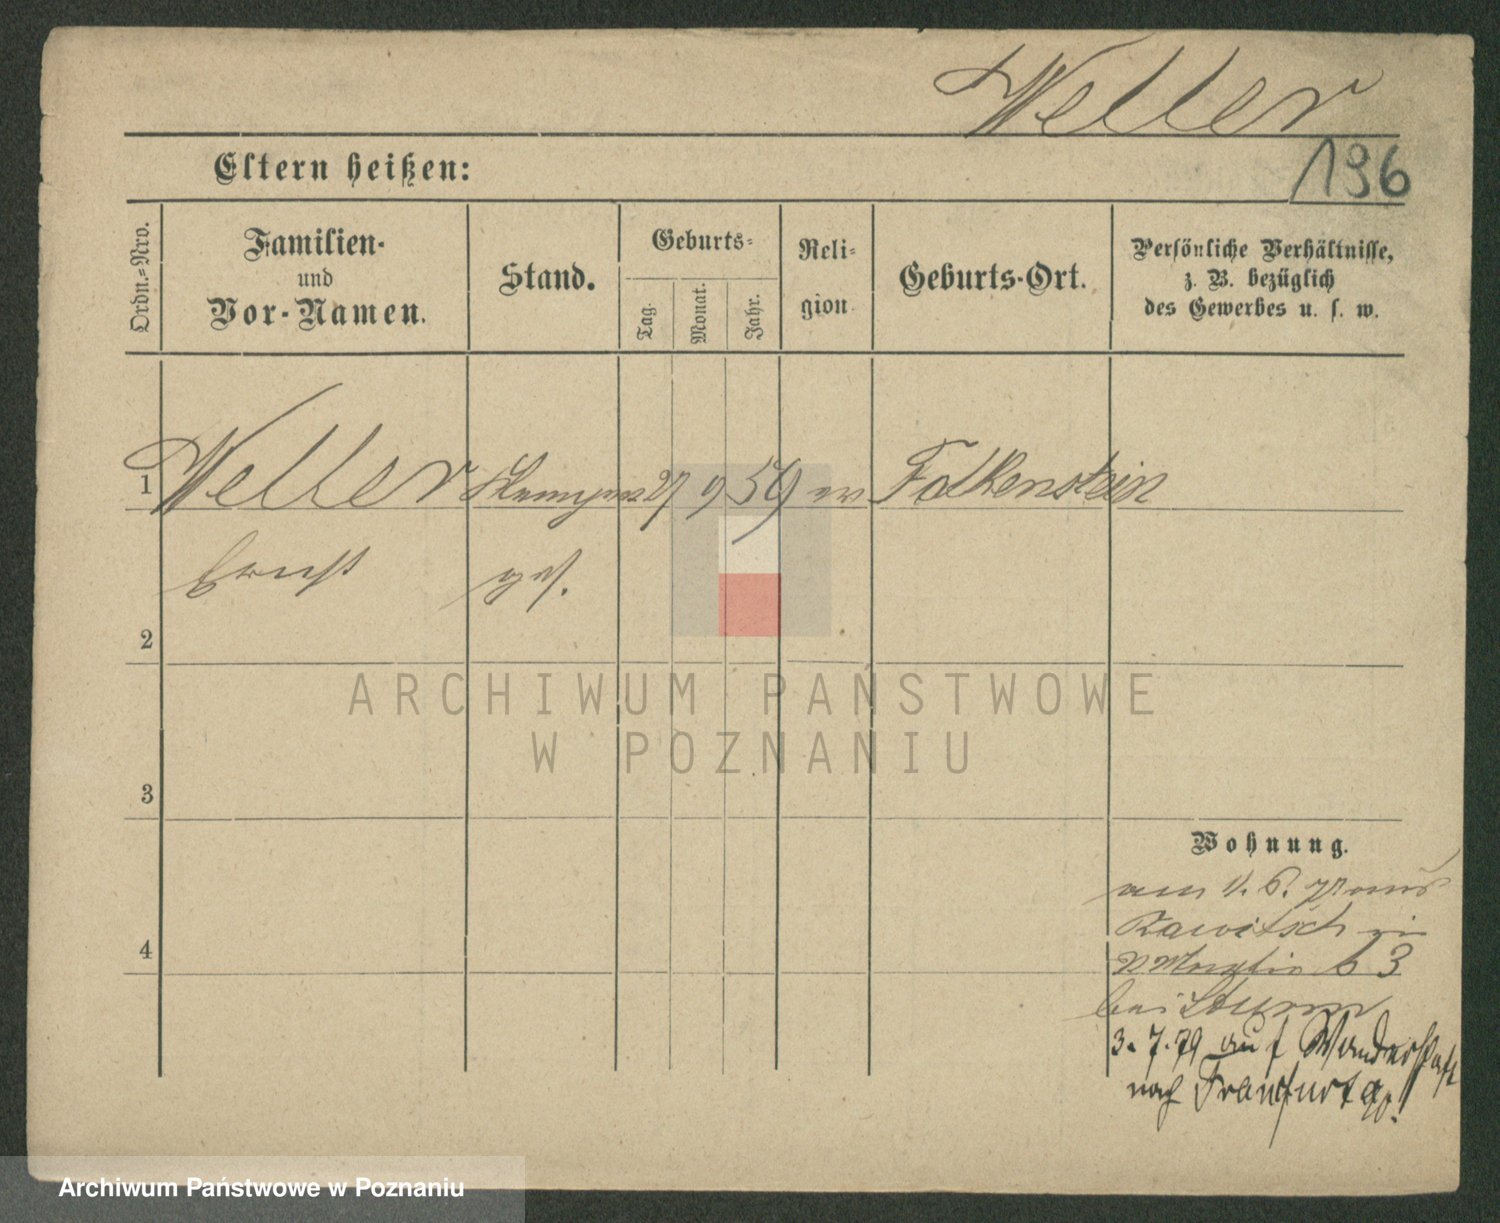 Weller
196
Eltern heißen:
Ordn.-Nro.
Familien-
und
Vor-Namen.
Stand.
Geburts-
Tag.
Monat.
Jahr.
Reli-
gion
Geburts-Ort.
Persönliche Verhältnisse,
z. B. bezüglich
des Gewerbes u. s. w.
1
Weller
Klempner
27
9
59
ev
Falkenstein
Ernst
ges.
2
ARCHIWUM PAŃSTWOWE
W POZNANIU
3
Wohnung.
am 1. 6. von
Rawitsch in
3
4
bei Sturm
3. 7. 79 auf Wanderschaft
nach Frankfurt a/O.
Archiwum Państwowe w Poznaniu